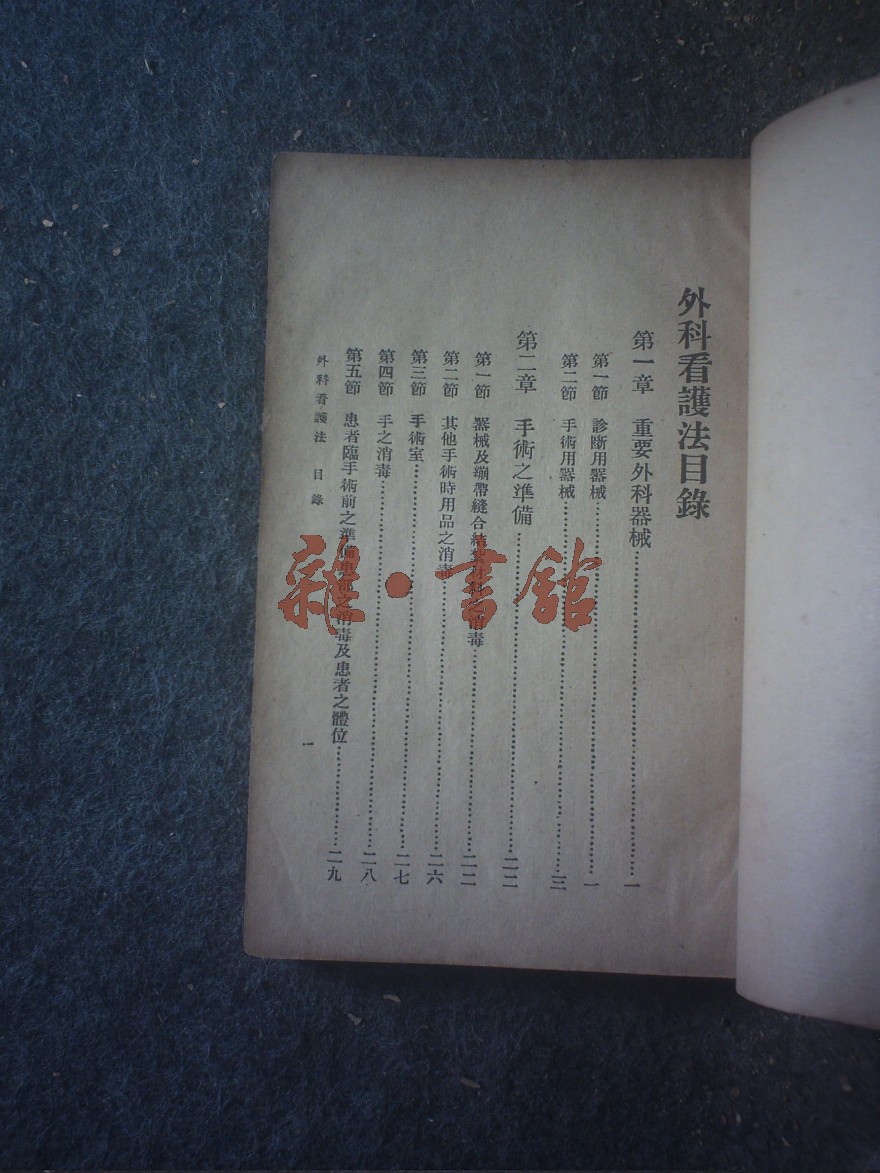 外科看護法目錄
第一章 重要外科器械……一
第一節 診斷用器械……一
第二節 手術用器械……三
第二章 手術之準備……二二
第一節 器械及繃帶縫合結紮材料之消毒……二二
第二節 其他手術時用品之消毒……二六
第三節 手術室……二七
第四節 手之消毒……二八
第五節 患者臨手術前之準備患部之消毒及患者之體位……二九
外科看護法 目錄 一
雜·書館